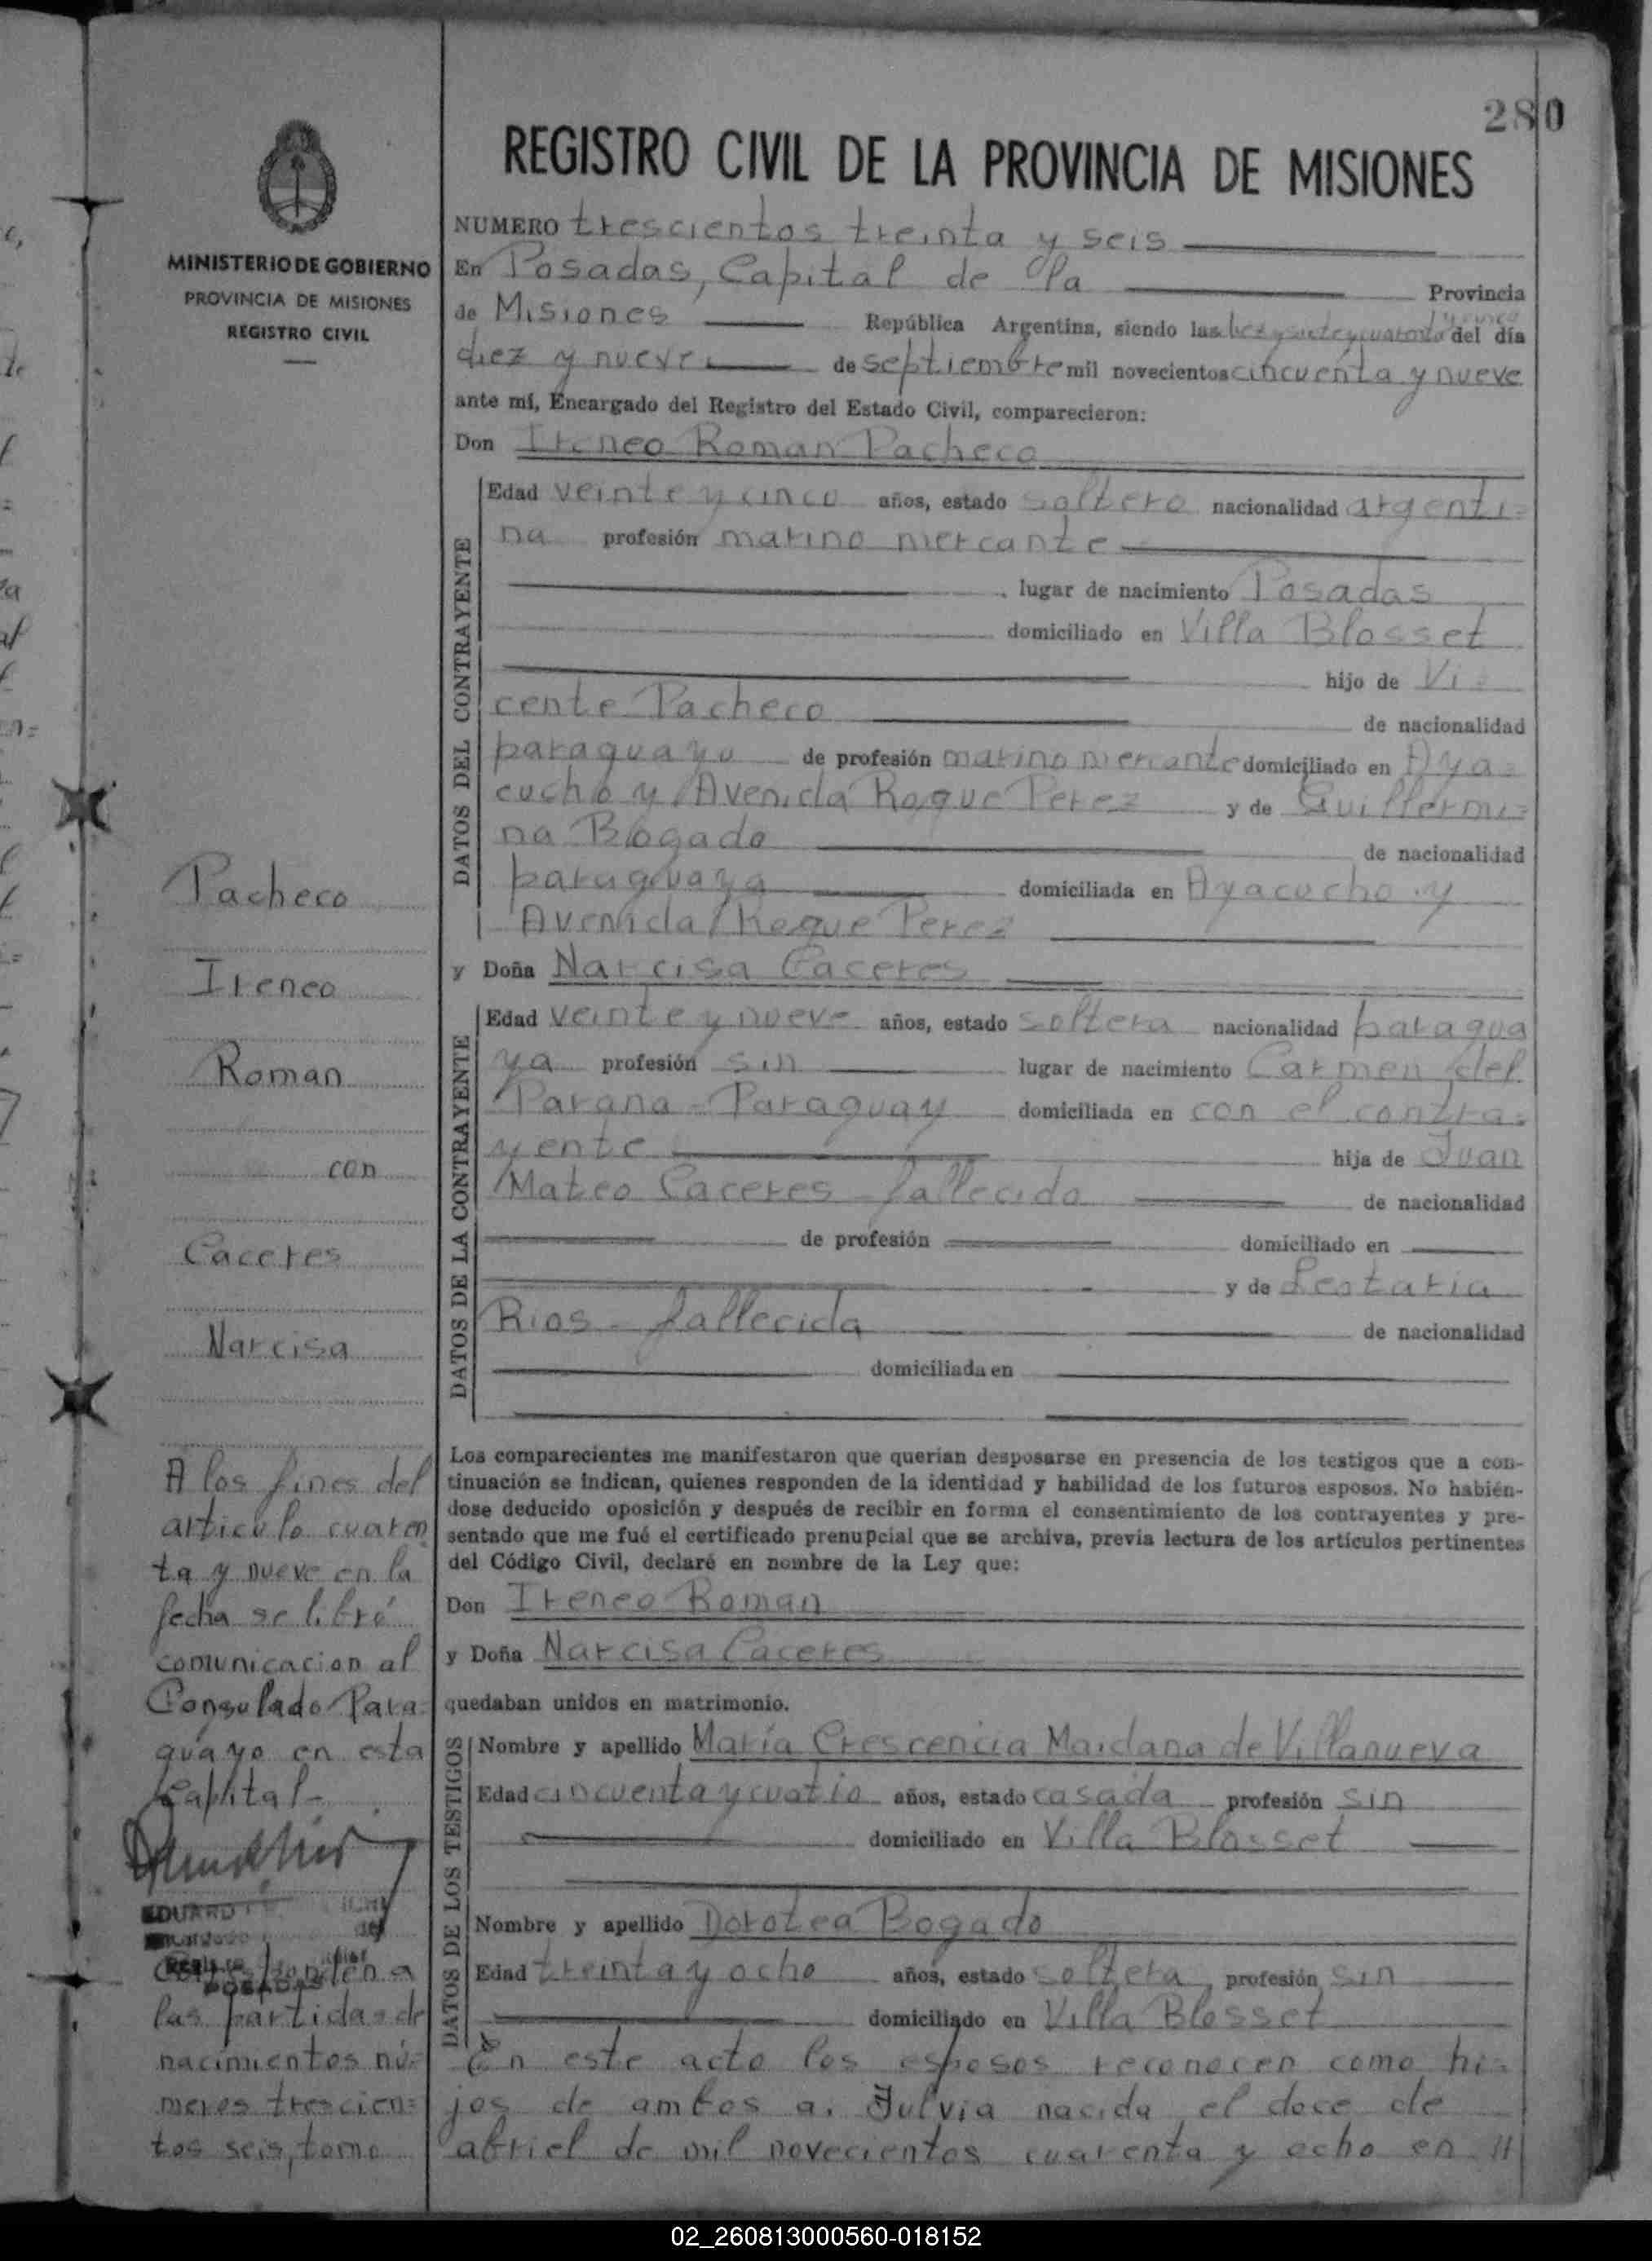 280
REGISTRO CIVIL DE LA PROVINCIA DE MISIONES
MINISTERIO DE GOBIERNO
PROVINCIA DE MISIONES
REGISTRO CIVIL
NUMERO trescientos treinta y seis
En Posadas, Capital de la Provincia
de Misiones República Argentina, siendo las diez y siete y cuarenta y cinco del día
diez y nueve de septiembre mil novecientos cincuenta y nueve
ante mí, Encargado del Registro del Estado Civil, comparecieron:
Don Ireneo Roman Pacheco
DATOS DEL CONTRAYENTE
Edad veinte y cinco años, estado soltero nacionalidad argenti=
na profesión marino mercante
lugar de nacimiento Posadas
domiciliado en Villa Blosset
hijo de Vi=
cente Pacheco de nacionalidad
paraguayo de profesión marino mercante domiciliado en Aya=
cucho y Avenida Roque Perez y de Guillermi=
na Bogado de nacionalidad
paraguaya domiciliada en Ayacucho y
Avenida Roque Perez
y Doña Narcisa Caceres
DATOS DE LA CONTRAYENTE
Edad veinte y nueve años, estado soltera nacionalidad paragua
ya profesión sin lugar de nacimiento Carmen del
Parana - Paraguay domiciliada en con el contra=
yente hija de Juan
Mateo Caceres - fallecido de nacionalidad
de profesión domiciliado en
y de
Rios - fallecida de nacionalidad
domiciliada en
Los comparecientes me manifestaron que querían desposarse en presencia de los testigos que a con-
tinuación se indican, quienes responden de la identidad y habilidad de los futuros esposos. No habién-
dose deducido oposición y después de recibir en forma el consentimiento de los contrayentes y pre-
sentado que me fué el certificado prenupcial que se archiva, previa lectura de los artículos pertinentes
del Código Civil, declaré en nombre de la Ley que:
Don Ireneo Roman
y Doña Narcisa Caceres
quedaban unidos en matrimonio.
DATOS DE LOS TESTIGOS
Nombre y apellido María Crescencia Maidana de Villanueva
Edad cincuenta y cuatro años, estado casada profesión sin
domiciliado en Villa Blosset
Nombre y apellido Dorotea Bogado
Edad treinta y ocho años, estado soltera, profesión sin
domiciliado en Villa Blosset
En este acto los esposos reconocen como hi=
jos de ambos a: Julvia nacida el doce de
abriel de mil novecientos cuarenta y ocho en
Pacheco
Ireneo
Roman
con
Caceres
Narcisa
A los fines del
articulo cuaren
ta y nueve en la
fecha se libró
comunicacion al
Consulado Para=
guayo en esta
Capital-
las partidas de
nacimientos nú=
meros trescien=
tos seis, tomo
02_260813000560-018152